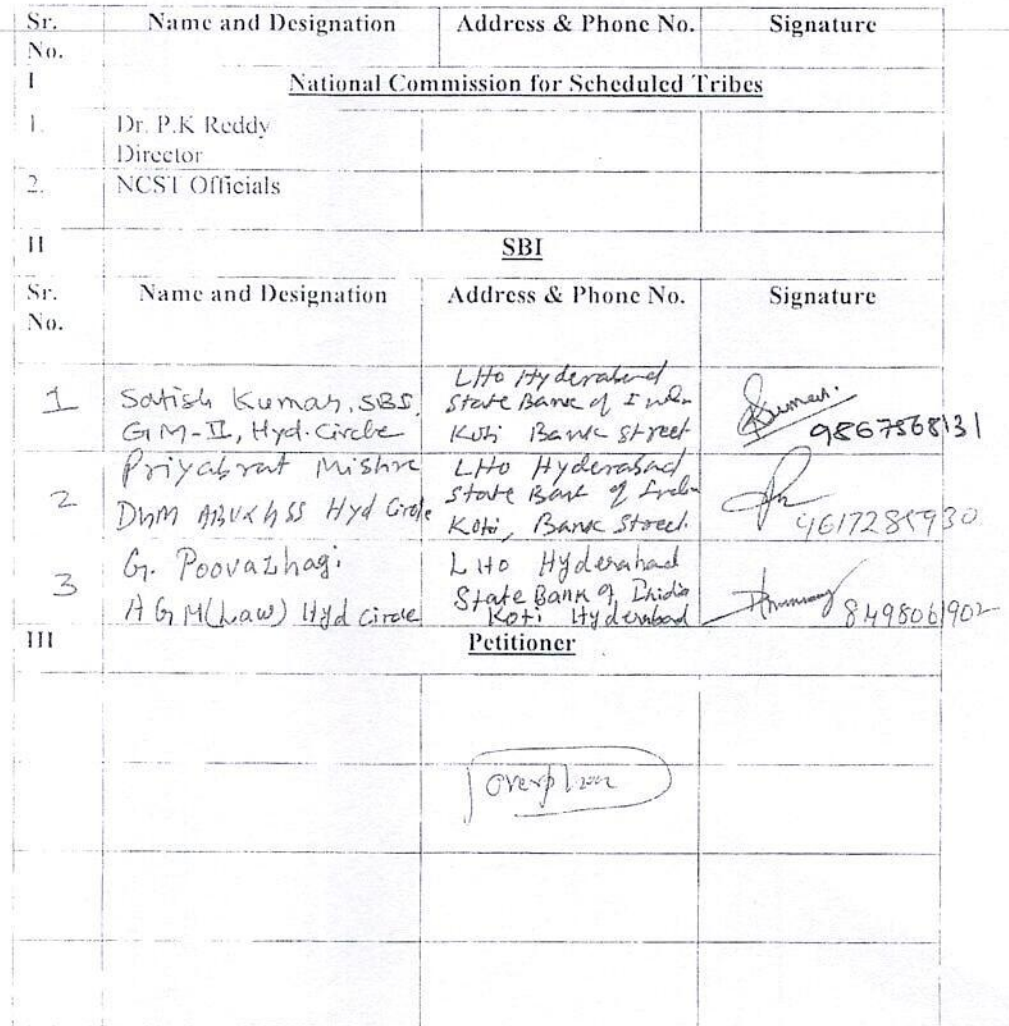 Sr. No. Name and Designation Address & Phone No. Signature
I National Commission for Scheduled Tribes
1. Dr. P.K Reddy
Director
2. NCST Officials
II SBI
Sr. No. Name and Designation Address & Phone No. Signature
1 Satish Kumar, SBI,
GM-II, Hyd. Circle
LHO Hyderabad
State Bank of India
Koti Bank street
Kumar.
9867568131
2 Priyabrat Mishra
DGM Hyd Circle
LHO Hyderabad
State Bank of India
Koti, Bank Street.
3 G. Poovazhagi
AGM(Law) Hyd Circle
LHO Hyderabad
State Bank of India
Koti Hyderabad
8498061902
III Petitioner